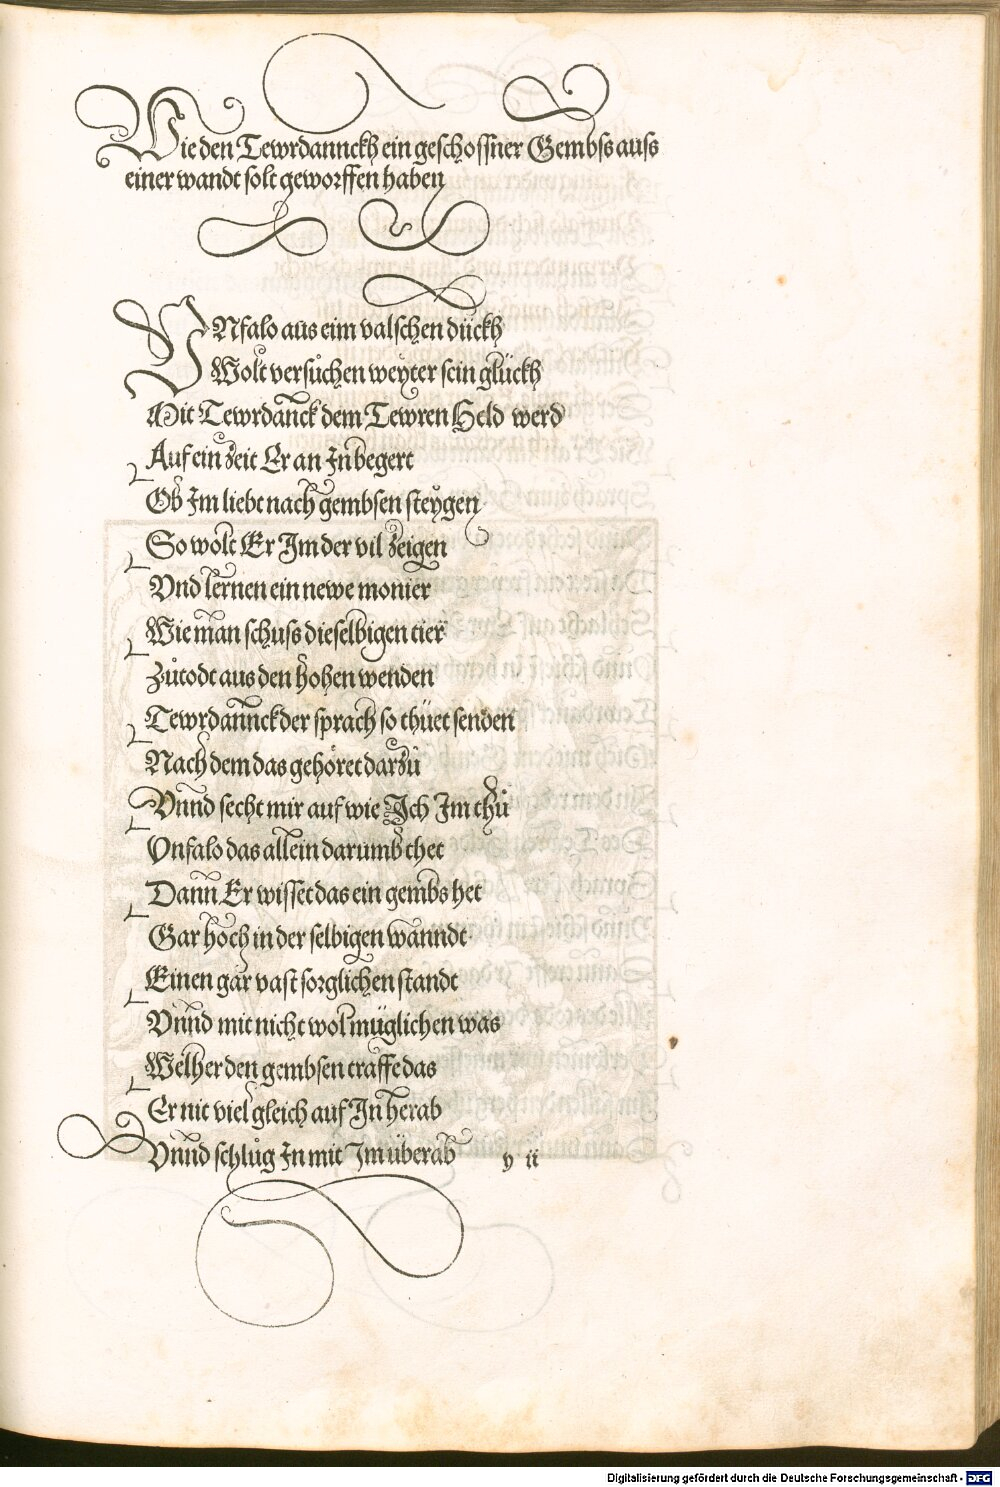 Wie den Tewrdannckh ein geschossner Gembss auss
einer wandt solt geworffen haben
VNfalo aus eim valschen dückh
Wolt versůchen weyter sein glückh
Mit Tewrdanck dem Tewren Held werd
Auf ein zeit Er an In begert
Ob Im liebt nach gembsen steygen
So wolt Er Im der vil zeigen
Vnd lernen ein newe monier
Wie man schuss dieselbigen tier
Zůtodt aus den hohen wenden
Tewrdannck der sprach so thüet senden
Nach dem das gehöret darzů
Vnnd secht mir auf wie Ich Im thů
Vnfalo das allein darumb thet
Dann Er wisset das ein gembs het
Gar hoch in der selbigen wanndt
Einen gar vast sorglichen standt
Vnnd mit nicht wol müglichen was
Welher den gembsen traffe das
Er nit viel gleich auf In herab
Vnnd schlůg In mit Im überab
y ii
Digitalisierung gefördert durch die Deutsche Forschungsgemeinschaft - DFG